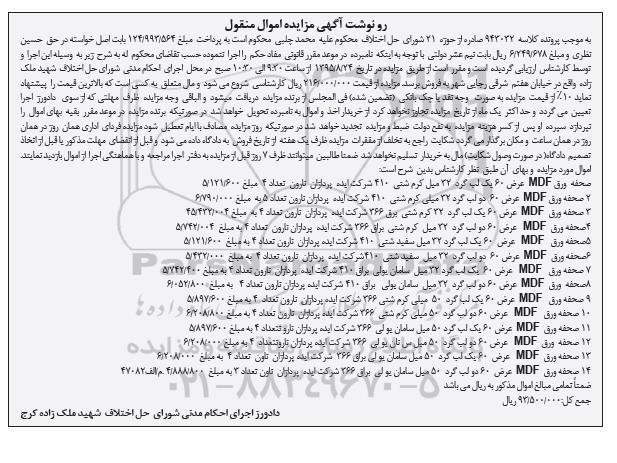 رو نوشت آگهی مزایده اموال منقول
به موجب پرونده کلاسه ۹۴۳۰۳۲ صادره از حوزه ۲۱ شورای حل اختلاف محکوم علیه محمد چلبی محکوم است به پرداخت مبلغ ۱۲۴/۹۹۳/۵۶۴ بابت اصل خواسته در حق حسین
نظری و مبلغ ۶/۲۴۹/۶۷۸ ریال بابت نیم عشر دولتی با توجه به اینکه نامبرده در موعد مقرر قانونی مفاد حکم را اجرا ننموده حسب تقاضای محکوم له به شرح زیر به وسیله این اجرا و
توسط کارشناس ارزیابی گردیده است و مقرر است از طریق مزایده در تاریخ ۱۳۹۵/۸/۲۴ از ساعت ۹:۳۰ الی ۱۰:۳۰ صبح در محل اجرای احکام مدنی شورای حل اختلاف شهید ملک
زاده واقع در خیابان هفتم شرقی رجایی شهر به فروش برسد مزایده از قیمت ۲۱۶/۰۰۰/۰۰۰ ریال کارشناسی شروع می شود و مال متعلق به کسی است که بالاترین قیمت را پیشنهاد
نماید ۱۰٪ از قیمت مزایده به صورت وجه نقد یا چک بانکی (تضمین شده) فی المجلس از برنده مزایده دریافت میشود و الباقی وجه مزایده ظرف مهلتی که از سوی دادورز اجرا
تعیین می گردد و حداکثر یک ماه از تاریخ مزایده تجاوز نخواهد کرد از خریدار اخذ و اموال به نامبرده تحویل خواهد شد در صورتیکه برنده مزایده در موعد مقرر بقیه بهای اموال را
نپردازد سپرده او پس از کسر هزینه مزایده به نفع دولت ضبط و مزایده تجدید خواهد شد در صورتیکه روز مزایده مصادف با ایام تعطیل شود مزایده فردای اداری همان روز در همان
روز در همان ساعت و مکان برگذار می گردد شکایت راجع به تخلف از مقررات مزایده ظرف یک هفته از تاریخ فروش به دادگاه داده می شود و قبل از انقضای مهلت مذکور یا قبل از اتخاذ
تصمیم دادگاه( در صورت وصول شکایت) مال به خریدار تسلیم نخواهد شد ضمنا طالبین میتوانند ظرف ۷ روز قبل از مزایده به دفتر اجرا مراجعه و با هماهنگی اجرا از اموال بازدید نمایند.
اموال مورد مزایده و بهای آن طبق نظر کارشناس بدین شرح است:
صحفه ورق MDF عرض ۶۰ یک لب گرد ۳۲ میل کرم شنی ۴۱۰ شرکت ایده پردازان نارون تعداد ۴ مبلغ ۵/۱۲۱/۶۰۰
۲ صحفه ورق MDF عرض ۶۰ دو لب گرد ۳۲ میلی کرم شنی ۴۱۰ شرکت ایده پردازان نارون تعداد ۵ به مبلغ ۶/۷۹۰/۰۰۰
۳ صحفه ورق MDF عرض ۶۰ یک لب گرد ۳۲ کرم شنی برق ۳۶۶ شرکت ایده پردازان نارون تعداد ۴ به مبلغ ۴۵/۴۳۲/۰۰۴
۴صحفه ورق MDF عرض ۶۰ دو لب گرد ۳۲ میل کرم شنی براق ۳۶۶ شرکت ایده پردازان نارون تعداد ۴ به مبلغ ۵/۷۴۲/۰۰۴
۵صحفه ورق MDF عرض ۶۰ یک لب گرد ۳۲ میل سفید شنی ۴۱۰ شرکت ایده پردازان نارون تعداد ۴ به مبلغ ۵/۱۲۱/۶۰۰
۶صحفه ورق MDF عرض ۶۰ دو لب گرد ۳۲ میل سفید شنی ۴۱۰شرکت ایده پردازان نارون تعداد ۴ به مبلغ ۵/۴۳۲/۰۰۰
۷ صحفه ورق MDF عرض ۶۰ یک لب گرد ۳۲ میل سامان یولی براق ۴۱۰ شرکت ایده پردازان نارون تعداد ۴ به مبلغ ۵/۷۴۲/۴۰۰
۸صحفه ورق MDF عرض ۶۰ دو لب گرد ۳۲ میل سامان یولی براق ۴۱۰ شرکت ایده پردازان نارون تعداد ۴ به مبلغ ۶/۰۵۲/۸۰۰
۹ صحفه ورق MDF عرض ۶۰ یک لب گرد ۵۰ میلی کرم شنی ۳۶۶ شرکت ایده پردازان نارون تعداد ۴ به مبلغ ۵/۸۹۷/۶۰۰
۱۰ صحفه ورق MDF عرض ۶۰ دو لب گرد ۵۰ میلی کرم شنی ۳۶۶ شرکت ایده پردازان نارون تعداد ۴ به مبلغ ۶/۲۰۸/۸۰۰
۱۱ صحفه ورق MDF عرض ۶۰ یک لب گرد ۵۰ میل سامان یو لی ۳۶۶ شرکت ایده پردازان نارو تتعداد ۴ به مبلغ ۵/۸۹۷/۶۰۰
۱۲ صحفه ورق MDF عرض ۶۰ دو لب گرد ۵۰ میل س نان یو لی ۳۶۶ شرکت ایده پردازان ناروتتعداد ۴ به مبلغ ۶/۲۰۸/۰۰۰
۱۳ صحفه ورق MDF عرض ۶۰ یک لب گرد ۵۰ میل سامان یو لی براق ۳۶۶ شرکت ایده پردازان ناون تعداد ۴ به مبلغ ۶/۲۰۸/۰۰۰
۱۴ صحفه ورق MDF عرض ۶۰ دو لب گرد ۵۰ میل سامان یو لی براق ۳۶۶ شرکت ایده پردازان ناون تعداد ۳ به مبلغ ۴/۸۸۸/۸۰۰ .م/الف۴۷۰۸۲
ضمناً تمامی مبالغ اموال مذکور به ریال می باشد
جمع کل:۹۲/۵۰۰/۰۰۰ ریال
دادورز اجرای احکام مدنی شورای حل اختلاف شهید ملک زاده کرج
۰۲۱-۸۸۳۴۹۶۷۰-۵